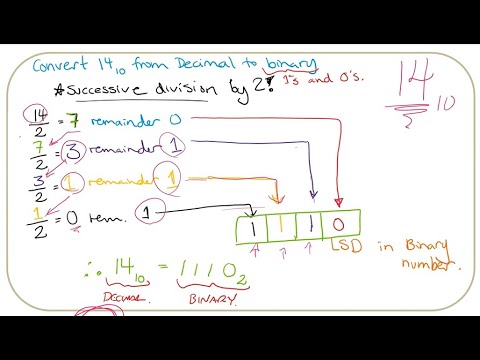 Convert 14₁₀ from Decimal to binary
*Successive division by 2! 1's and 0's.
14/2 = 7 remainder 0
7/2 = 3 remainder 1
3/2 = 1 remainder 1
1/2 = 0 rem. 1
1 1 1 0
LSD in Binary number.
∴ 14₁₀ = 1110₂
DECIMAL BINARY.
14/2 10